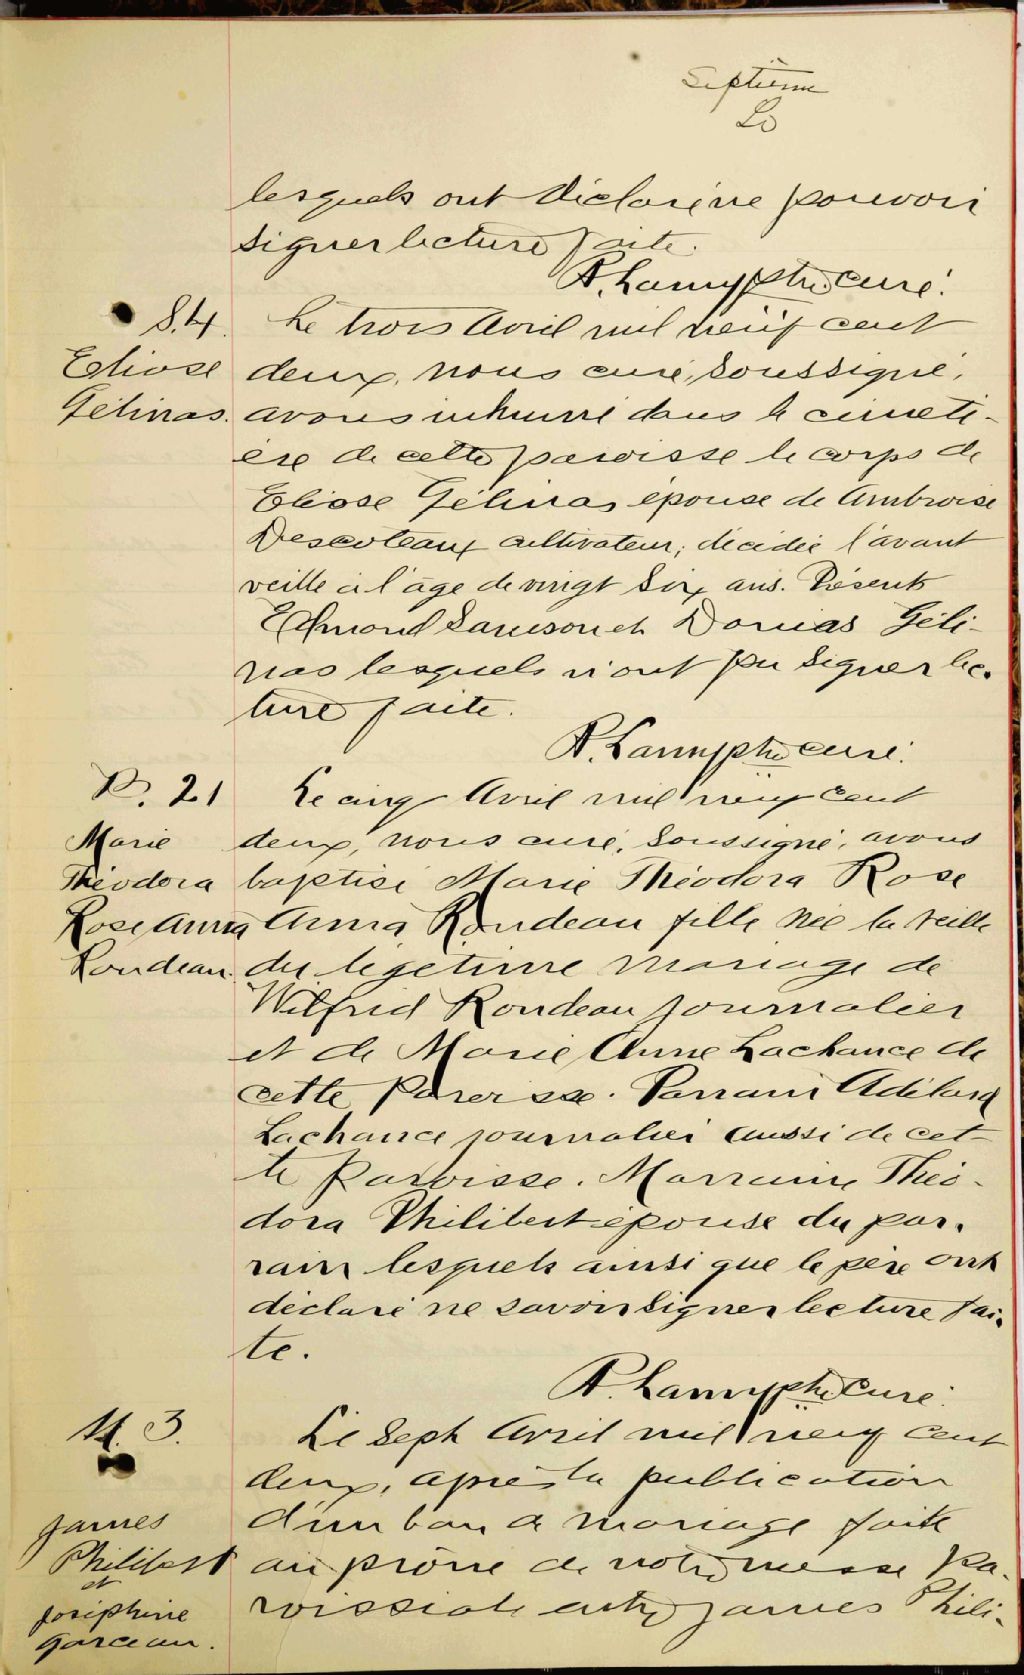 Septième
Lo
lesquels ont déclaré ne pouvoir
signer lecture faite.
P. Lamy ptre curé.
S. 4.
Eliose
Gélinas.
Le trois Avril mil neuf cent
deux, nous curé, soussigné,
avons inhumé dans le cimeti-
ère de cette paroisse le corps de
Eliose Gélinas épouse de Ambroise
Descoteaux cultivateur, décédée l'avant
veille à l'âge de vingt six ans. Présents
Edmond Samson et Donias Géli-
nas lesquels n'ont pu signer lec-
ture faite.
P. Lamy ptre curé.
B. 21
Marie
Théodora
Rose Anna
Rondeau.
Le cinq Avril mil neuf cent
deux, nous curé, soussigné, avons
baptisé Marie Théodora Rose
Anna Rondeau fille née la veille
du légetime mariage de
Wilfrid Rondeau journalier
et de Marie Anne Lachance de
cette paroisse. Parrain Adélard
Lachance journalier aussi de cet-
te paroisse. Marraine Théo-
dora Philibert épouse du par-
rain lesquels ainsi que le père ont
déclaré ne savoir signer lecture fai-
te.
P. Lamy ptre Curé.
M. 3.
James
Philibert
et
Joséphine
Garceau.
Le Sept Avril mil neuf cent
deux, après la publication
d'un ban de mariage faite
au prône de notre messe pa-
roissiale entre James Phili-